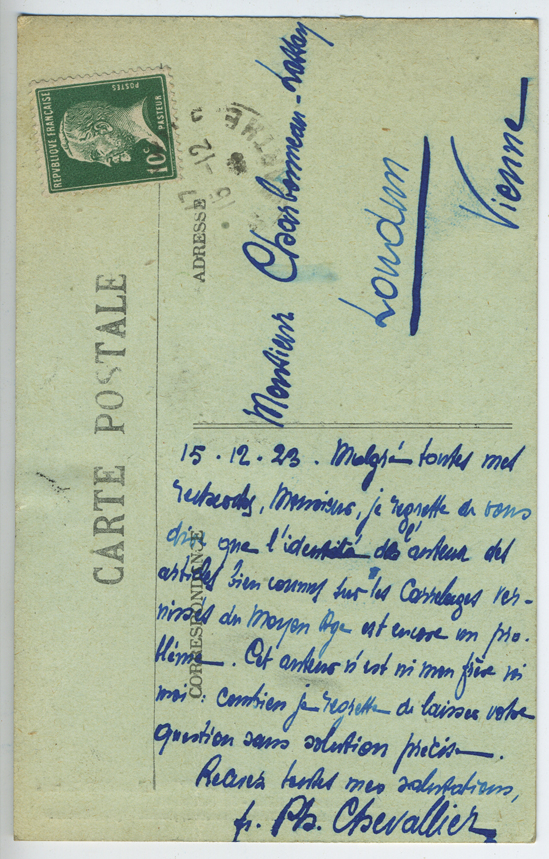 REPVBLIQUE FRANÇAISE
POSTES
PASTEUR
10c
15 -12
CARTE POSTALE
ADRESSE
CORRESPONDANCE
Monsieur Charbonneau-Lassay
Loudun
Vienne
15. 12. 23. Malgré toutes mes
recherches, Monsieur, je regrette de vous
dire que l'identité de l'auteur des
articles bien connus sur les Carrelages ver-
nissés du Moyen Age est encore un pro-
blème. Cet auteur n'est ni mon frère ni
moi : combien je regrette de laisser votre
question sans solution précise.
Recevez toutes mes salutations,
fr. Ph. Chevallier